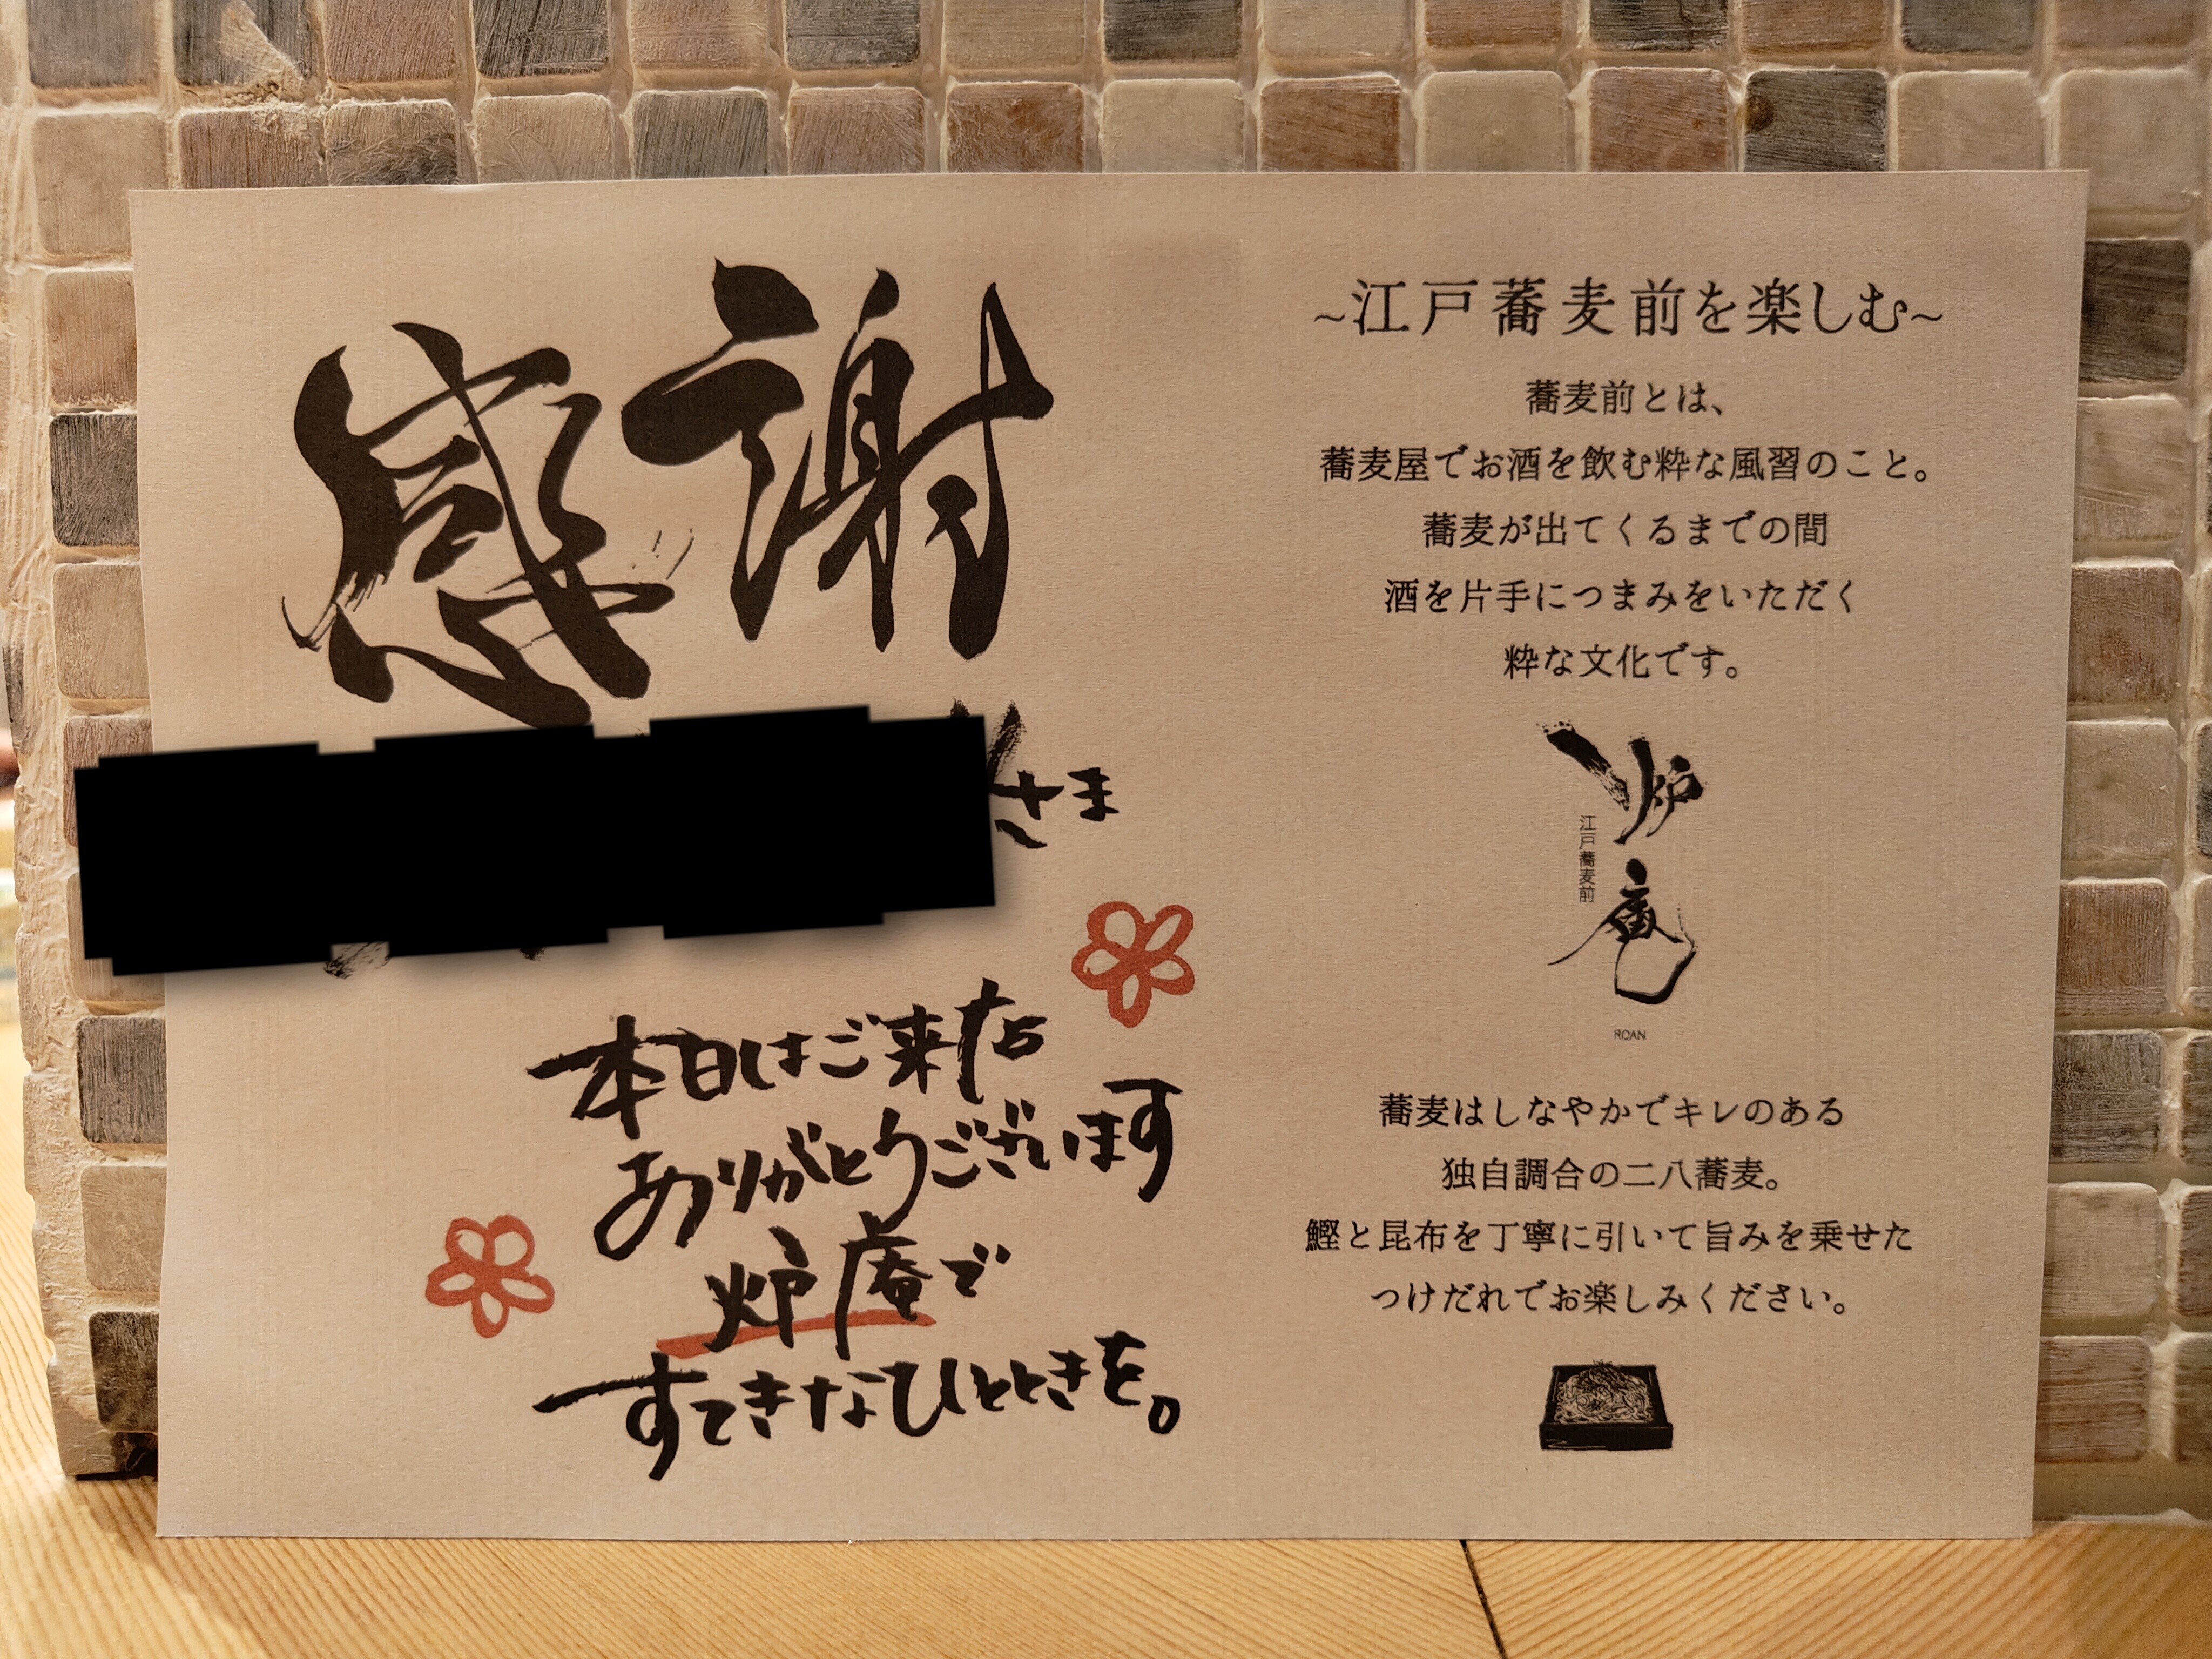 感謝
さま
本日はご来店
ありがとうございます
炉庵で
すてきなひとときを。
~江戸蕎麦前を楽しむ~
蕎麦前とは、
蕎麦屋でお酒を飲む粋な風習のこと。
蕎麦が出てくるまでの間
酒を片手につまみをいただく
粋な文化です。
炉庵
江戸蕎麦前
ROAN
蕎麦はしなやかでキレのある
独自調合の二八蕎麦。
鰹と昆布を丁寧に引いて旨みを乗せた
つけだれでお楽しみください。